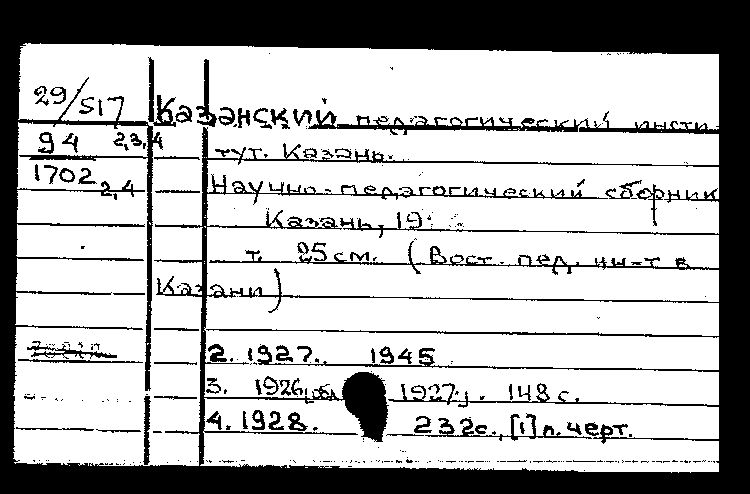 29/S17 Казанский педагогический инсти-
94 2,3,4 тут. Казань.
1702 2,4 Научно-педагогический сборник
Казань, 19
т. 25 см. (Вост. пед. ин-т в
Казани)
2. 1927. 1945
3. 1926, обл 1927. 148 с.
4. 1928. 232с., [1] л. черт.